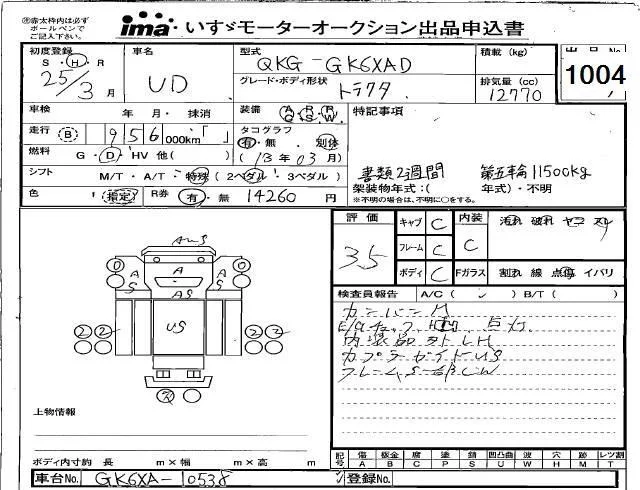 ㊟赤太枠内は必ず
ボールペンで
ご記入下さい。
ima いすゞモーターオークション出品申込書
初度登録 車名 型式 積載 (kg) 出品No
S・H・R QKG-GK6XAD 1004
25/3月 UD グレード・ボディ形状 トラクタ 排気量 (cc) 12770
車検 年 月・抹消 装備 特記事項
走行 B 956000km「 」 タコグラフ
有・無 別体
燃料 G・D・HV 他( ) (13年03月)
書類2週間 第五輪11500kg
シフト M/T・A/T 特殊 (2ペダル / 3ペダル) 架装物年式:( 年式)・不明
※不明の場合は、不明に○をする。
色 (指定) R券 有・無 14260 円
評価 キャブ C 内装 汚れ 破れ ヤニ スレ
3.5 フレーム C C
ボディ C Fガラス 割れ 線 点傷 イバリ
検査員報告 A/C ( ) B/T ( )
内装品外レLH
カプラガイドUS
AUS
A A A
S AS S
US
2 2 2 2
上物情報
記号 傷 板金 腐 塗 錆 凹凸曲 波 穴 跡 レツ割
A B C P S U W H M T
ボディ内寸約 長 m×幅 m×高 m
車台No. GK6XA-10538 登録No.